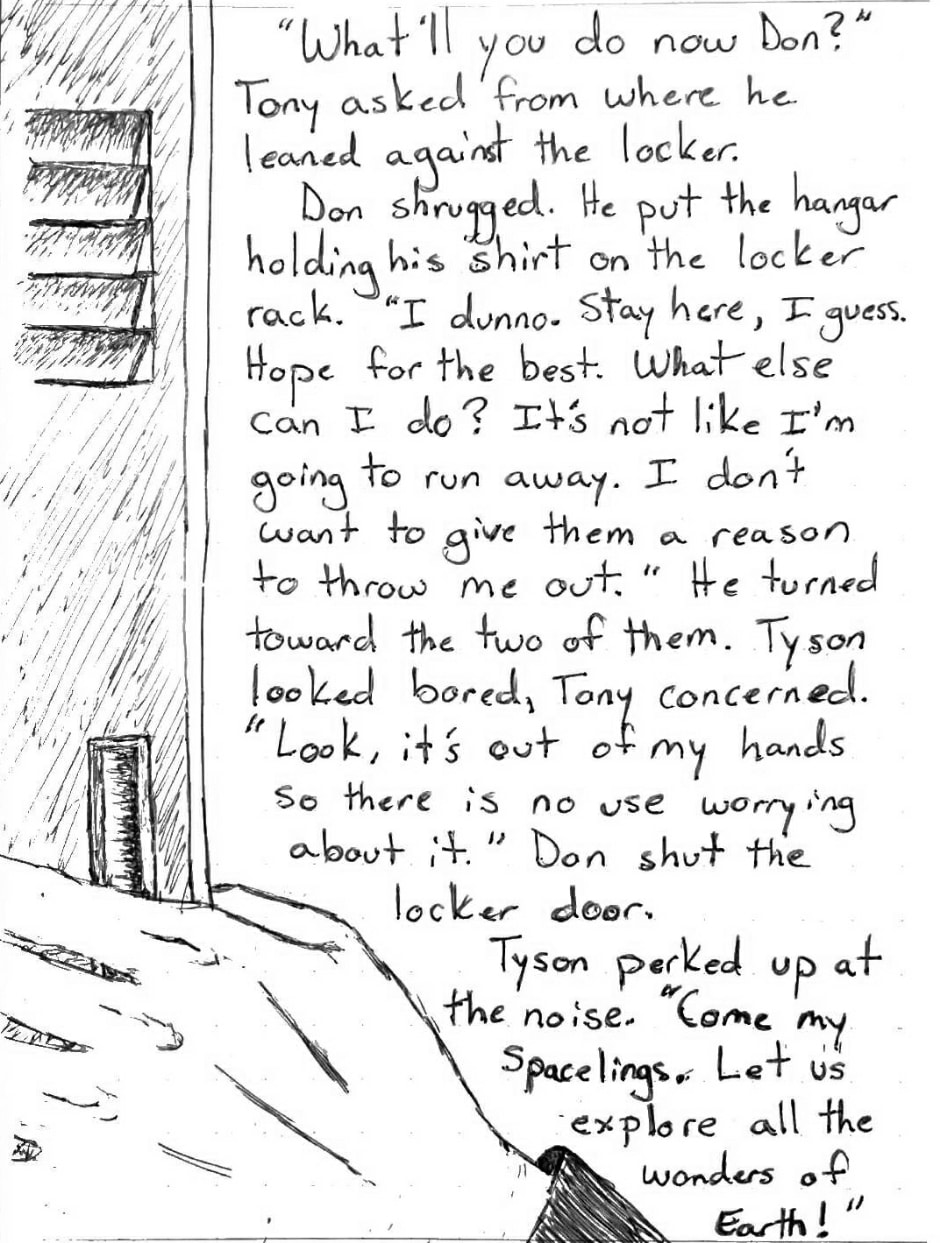 "What'll you do now Don?"
Tony asked from where he
leaned against the locker.
Don shrugged. He put the hangar
holding his shirt on the locker
rack. "I dunno. Stay here, I guess.
Hope for the best. What else
can I do? It's not like I'm
going to run away. I don't
want to give them a reason
to throw me out." He turned
toward the two of them. Tyson
looked bored, Tony concerned.
"Look, it's out of my hands
so there is no use worrying
about it." Don shut the
locker door.
Tyson perked up at
the noise. "Come my
Spacelings. Let us
explore all the
wonders of
Earth!"